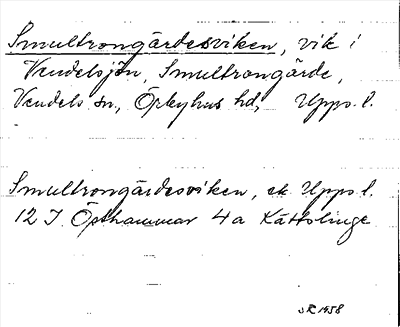 Smultrongärdesviken, vik i
Vendelsjön, Smultrongärde,
Vendels sn, Örbyhus hd, Upps. l.
Smultrongärdesviken, ek Upps. l.
12 I Östhammar 4a Kättslinge
1958